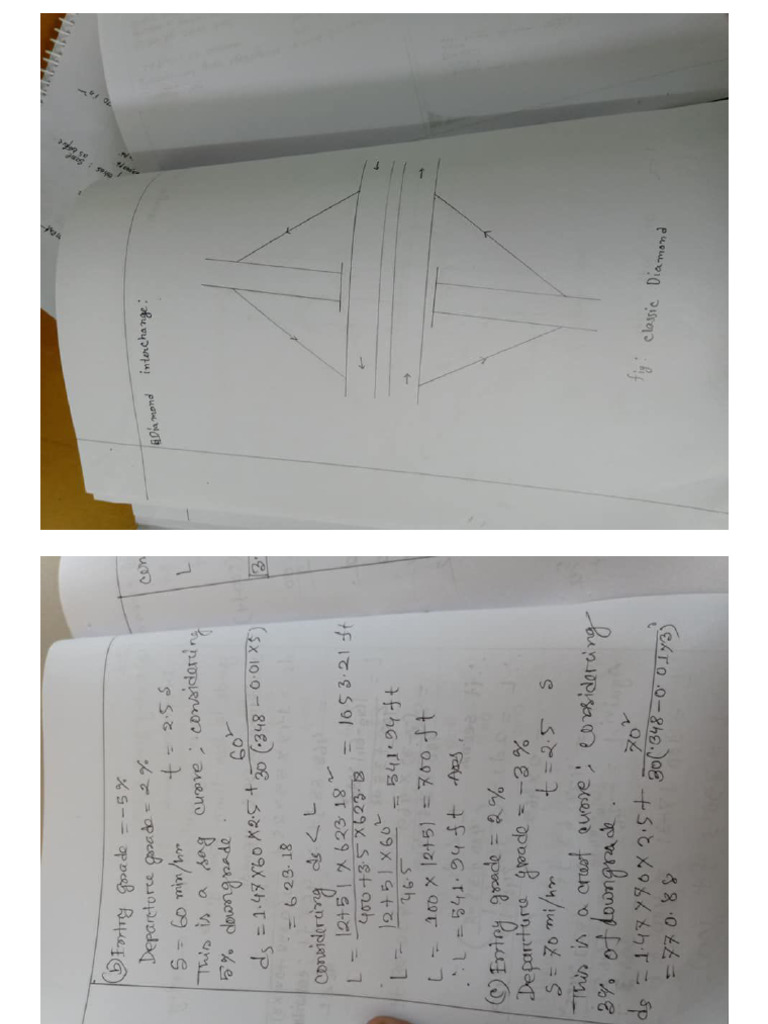 Diamond interchange:
fig: classic Diamond
(b) Entry grade = -5%
Departure grade = 2%
S = 60 min/hr t = 2.5 s
This is a sag curve; considering
5% downgrade.
ds = 1.47 X60 X2.5 + 60² / 30 (.348 - 0.01 X5)
= 623.18
considering ds < L
L = |2+5| X 623.18² / 400 + 3.5 X 623.18 = 1053.21 ft
L = |2+5| X 60² / 46.5 = 541.94 ft
L = 100 X |2+5| = 700 ft
∴ L = 541.94 ft Ans.
(c) Entry grade = 2%
Departure grade = -3%
S = 70 mi/hr t = 2.5 s
This is a crest curve; considering
3% of downgrade.
ds = 1.47 X 70 X 2.5 + 70² / 30(.348 - 0.01X3)
= 770.88
con
L
3.